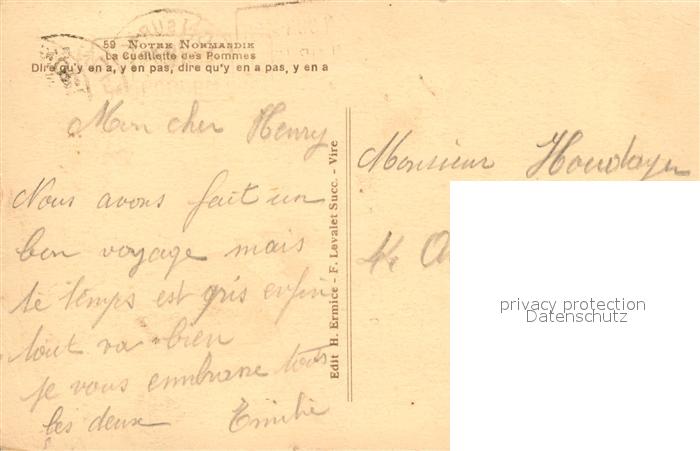 59 NOTRE NORMANDIE
La Cueillette des Pommes
Dire qu'y en a, y en pas, dire qu'y en a pas, y en a
Mon cher Henry
Nous avons fait un
bon voyage mais
le temps est gris enfin
tout va bien
je vous embrasse tous
les deux Emilie
Edit H. Ermice - F. Levalet Succ. - Vire
Monsieur Houdayer
44
privacy protection
Datenschutz